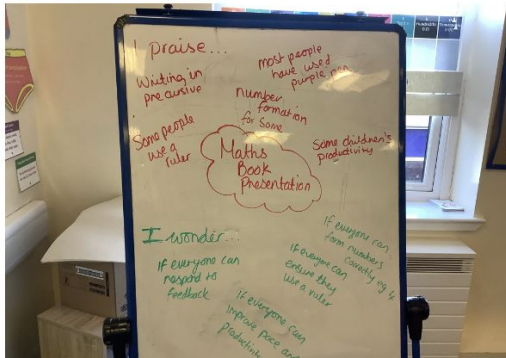 I praise...
Writing in
precursive
most people
have used
purple pen
number
formation
for some
Some people
use a
ruler
Some children's
productivity
Maths
Book
Presentation
I wonder...
If everyone can
respond to
feedback
If everyone can
form numbers
correctly eg 4
If everyone can
ensure they
use a ruler
If everyone can
improve pace and
productivity